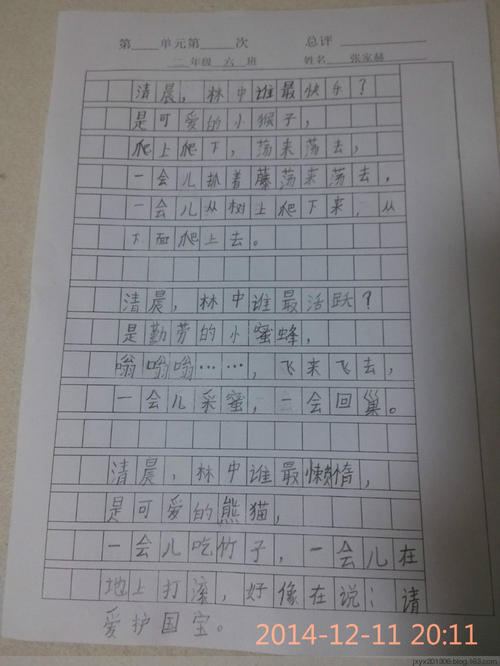 第____单元第____次 总评____
二年级 六 班 姓名 张家赫
清晨，林中谁最快乐？
是可爱的小猴子，
爬上爬下，荡来荡去，
一会儿抓着藤荡来荡去，
一会儿从树上爬下来，从
下面爬上去。
清晨，林中谁最活跃？
是勤劳的小蜜蜂，
嗡嗡嗡……，飞来飞去，
一会儿采蜜，一会回巢。
清晨，林中谁最懒惰，
是可爱的熊猫，
一会儿吃竹子，一会儿在
地上打滚，好像在说：请
爱护国宝。
2014-12-11 20:11
jxyx201306.blog.163.com